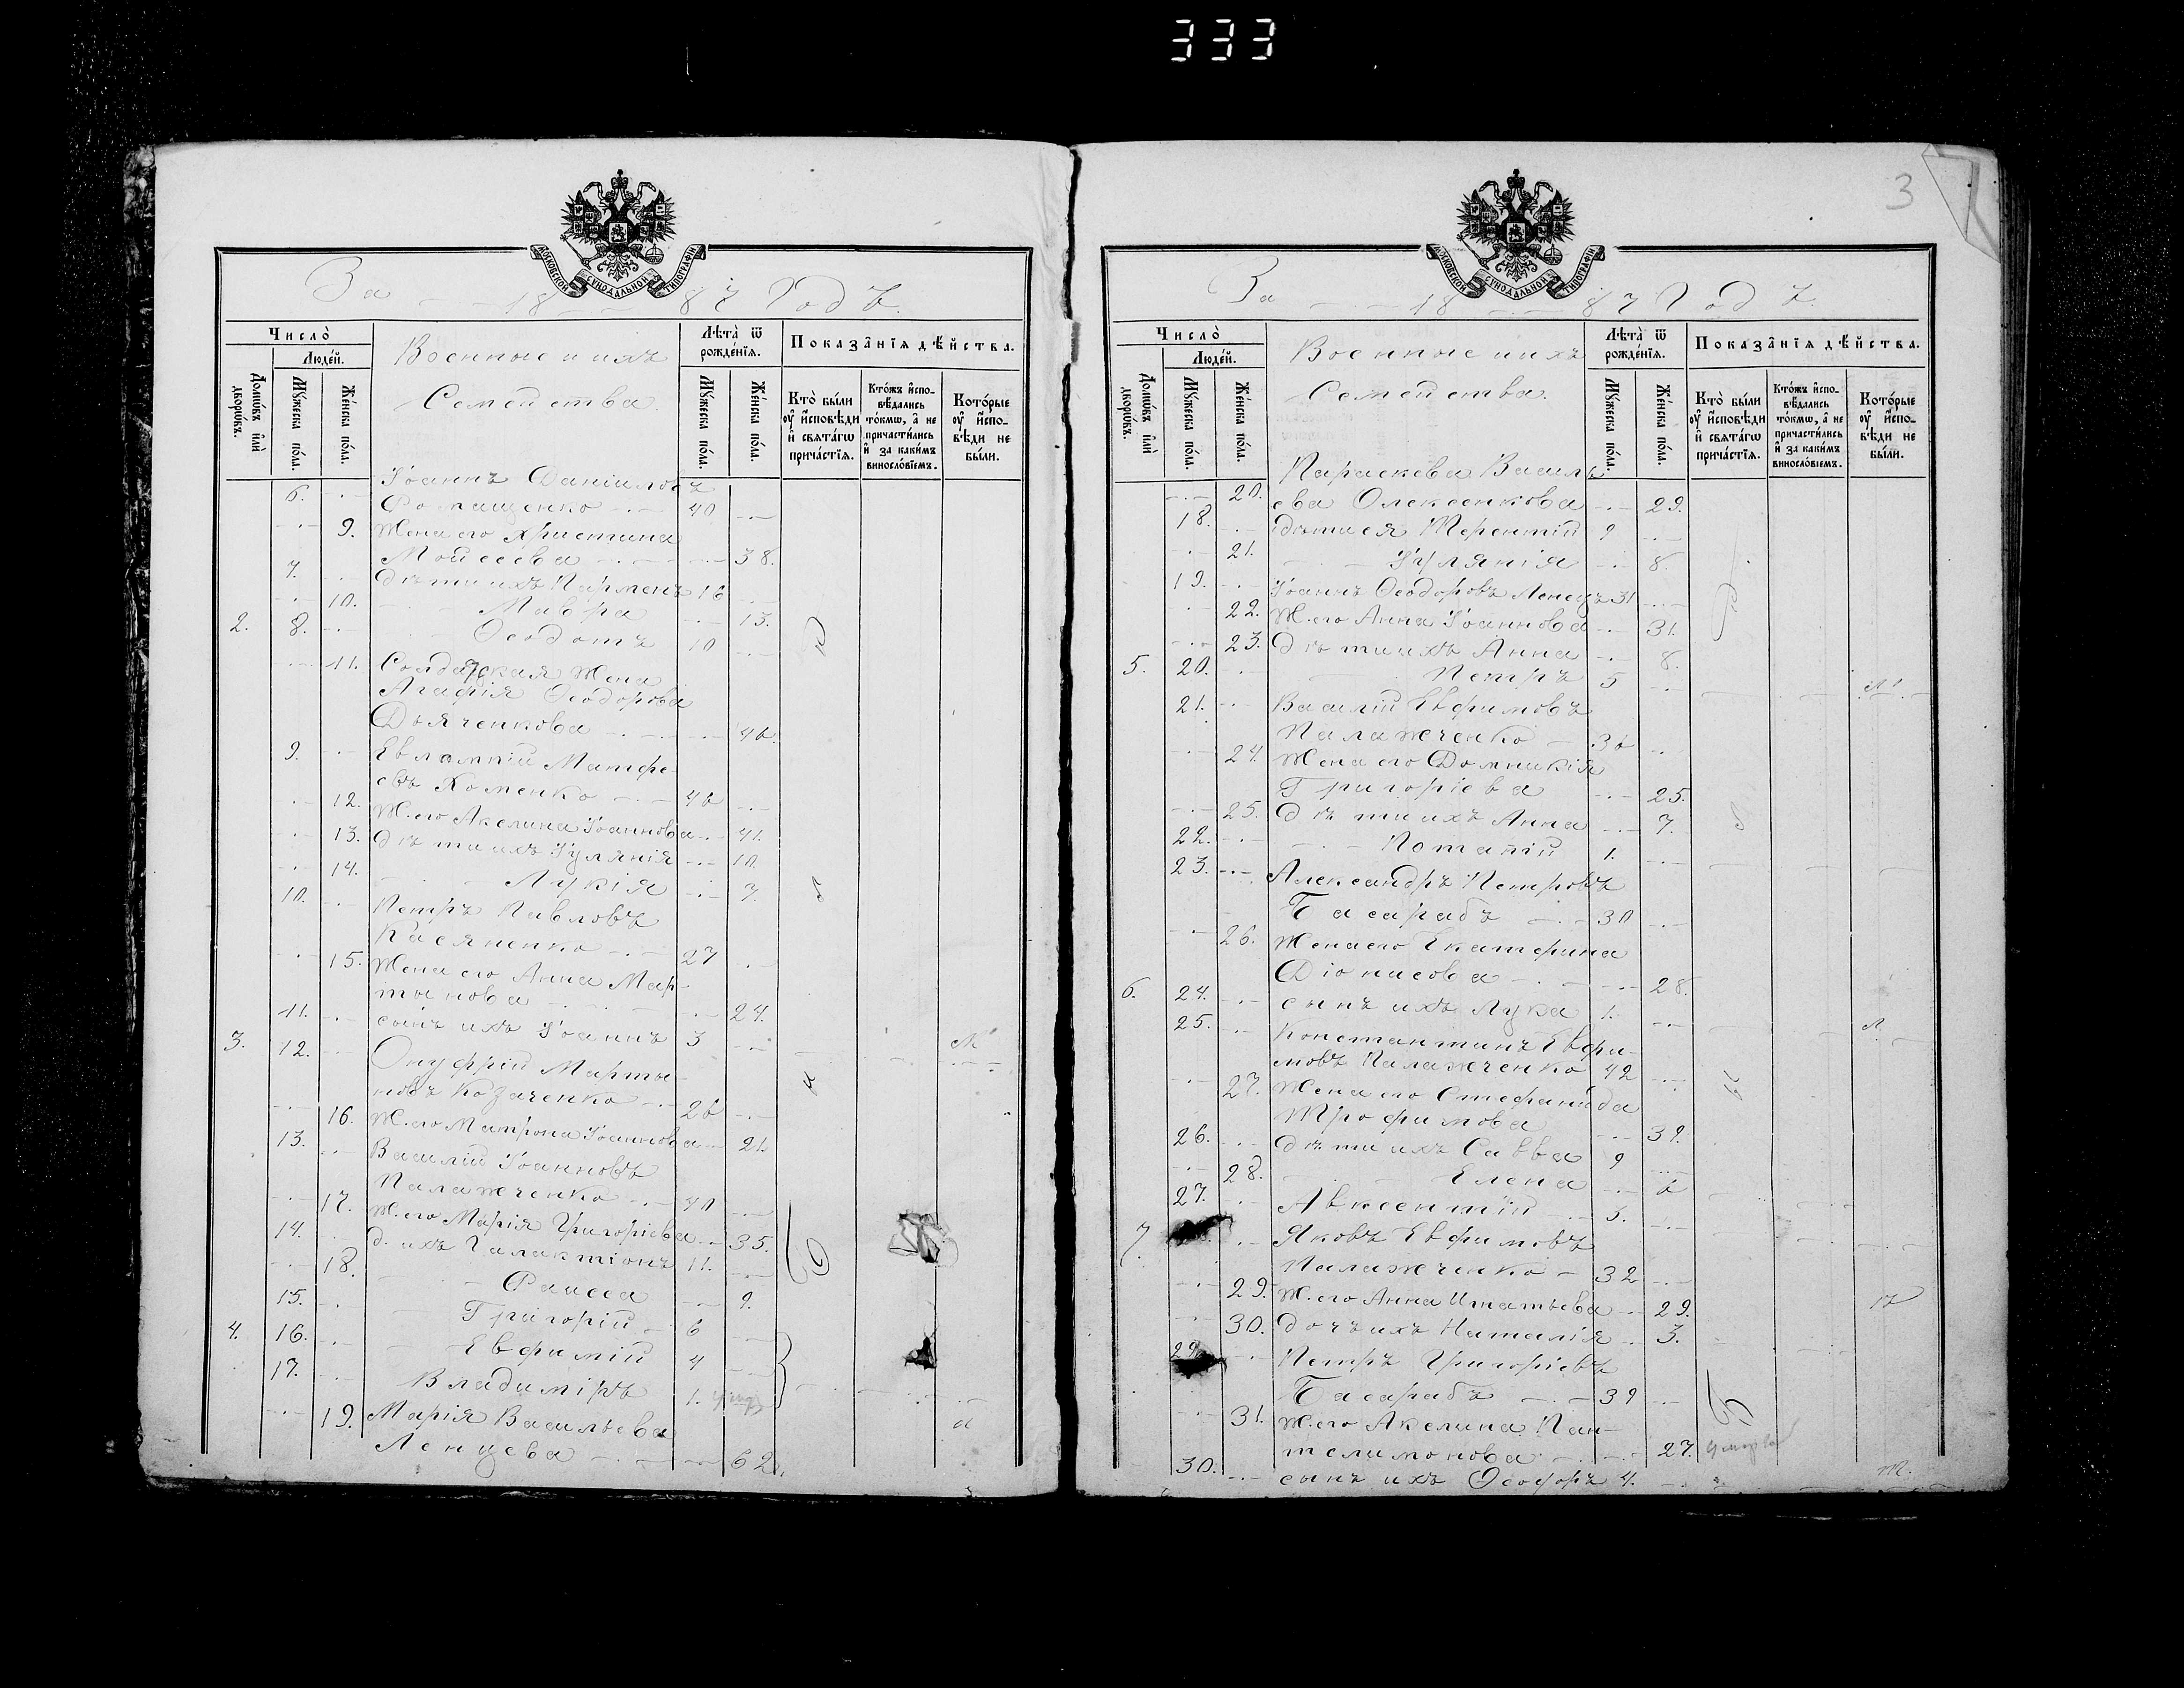 333
3
МОСКОВСКОЙ СУНОДАЛЬНОЙ ТИПОГРАФІИ
За 1887 Годъ.
Число̀
Людей.
Домѡвъ или дворѡвъ.
Мужеска пола.
Женска пола.
Военные и ихъ
Семейства.
Лѣта ѿ рожденїѧ.
Мужеска пола.
Женска пола.
Показанїѧ дѣйства.
Кто были оу исповѣди и свѧтагѡ причастїѧ.
Ктожъ исповѣдались токмѡ, а не причастились и за какимъ винословїемъ.
Которые оу исповѣди не были.
Іоаннъ Даніиловъ
6. Ромащенко 40
9. Жена его Христина
Моисеева 38.
7. дѣти ихъ Парменъ 16
10. Мавра 13.
2. 8. Ѳеодотъ 10
11. Солдатская жена
Агафія Ѳеодорова
Дьяченкова 46.
9. Евлампій Матфе-
евъ Хоменко 46
12. Ж. его Акелина Іоаннова 41.
13. дѣти ихъ Іуліянія 10.
14. Лукія 7.
10. Петръ Павловъ
Касяненко 27
15. Жена его Анна Мар-
тынова 24.
11. сынъ ихъ Іоаннъ 3
3. 12. Онуфрій Марты-
новъ Козаченко 26
16. Ж. его Матрона Іоаннова 21.
13. Василій Іоанновъ
Палажченко 40
17. Ж. его Марія Григоріева 35.
14. д. ихъ Галактіонъ 11.
18. Раисса 9.
15. Григорій 6
4. 16. Евфимій 4
17. Владиміръ 1.
19. Марія Васильева
Ленцева 62.
МОСКОВСКОЙ СУНОДАЛЬНОЙ ТИПОГРАФІИ
За 1887 Годъ.
Число̀
Людей.
Домѡвъ или дворѡвъ.
Мужеска пола.
Женска пола.
Военные и ихъ
Семейства.
Лѣта ѿ рожденїѧ.
Мужеска пола.
Женска пола.
Показанїѧ дѣйства.
Кто были оу исповѣди и свѧтагѡ причастїѧ.
Ктожъ исповѣдались токмѡ, а не причастились и за какимъ винословїемъ.
Которые оу исповѣди не были.
Параскева Василь
20. ева Олексенкова 29.
18. дѣти ея Терентій 9
21. Іуліянія 8.
19. Іоаннъ Ѳеодоровъ Ленецъ 31
22. Ж. его Анна Іоаннова 31.
23. Дѣти ихъ Анна 8.
5. 20. Петръ 5
21. Василій Евфимовъ
Палажченко 36
24. Жена его Домникія
Григоріева 25.
25. Дѣти ихъ Анна 7.
22. Потапій 1.
23. Александръ Петровъ
Басарабъ 30
26. Жена его Екатерина
Діонисова 28.
6. 24. сынъ ихъ Лука 1.
25. Константинъ Евфи-
мовъ Палажченко 42
27. Жена его Стефанида
Трофимова 39.
26. Дѣти ихъ Савва 9
28. Елена 6
27. Авксентій 3.
7. Яковъ Евфимовъ
Палажченко 32
29. Ж. его Анна Игнатьева 29.
30. дочь ихъ Наталія 3.
29. Петръ Григоріевъ
Басарабъ 39
31. Ж. его Акелина Пан-
телимонова 27.
30. сынъ ихъ Ѳеодоръ 4.